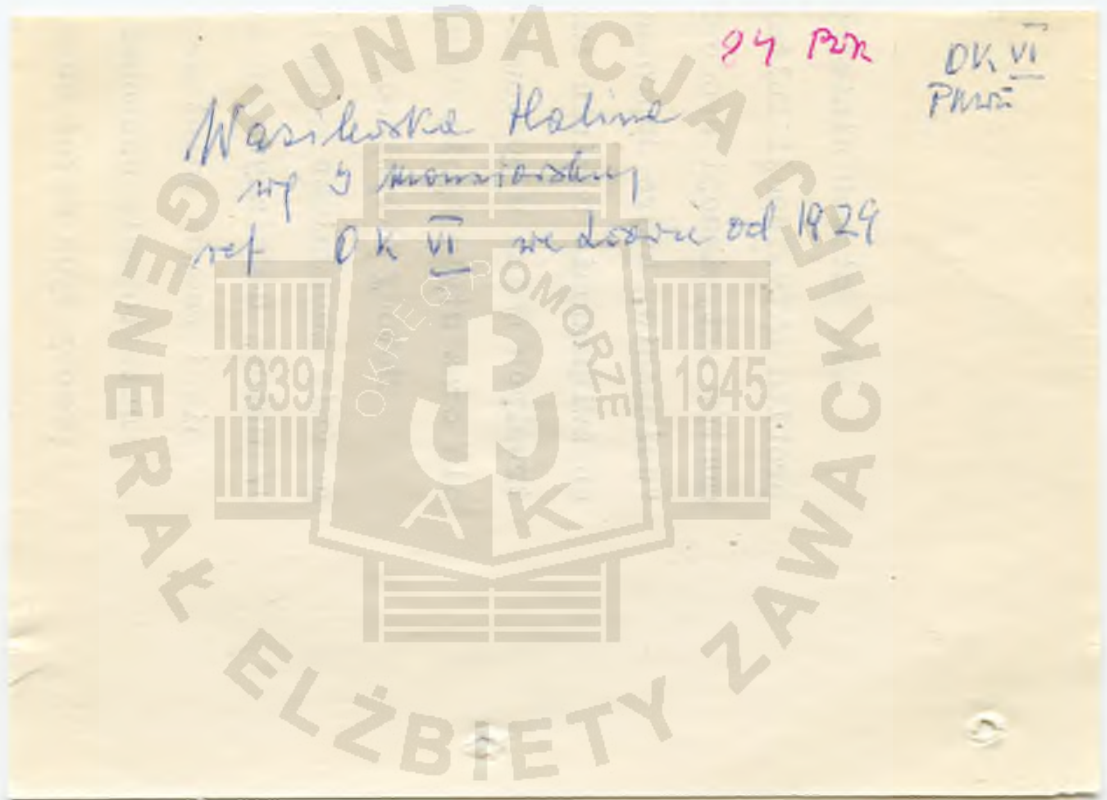 OK VI
PKWŻ
Wasilewska Halina
wg J
ref OK VI we Lwowie od 1929
FUNDACJA GENERAŁ ELŻBIETY ZAWACKIEJ
OKRĘG POMORZE
1939
1945
AK